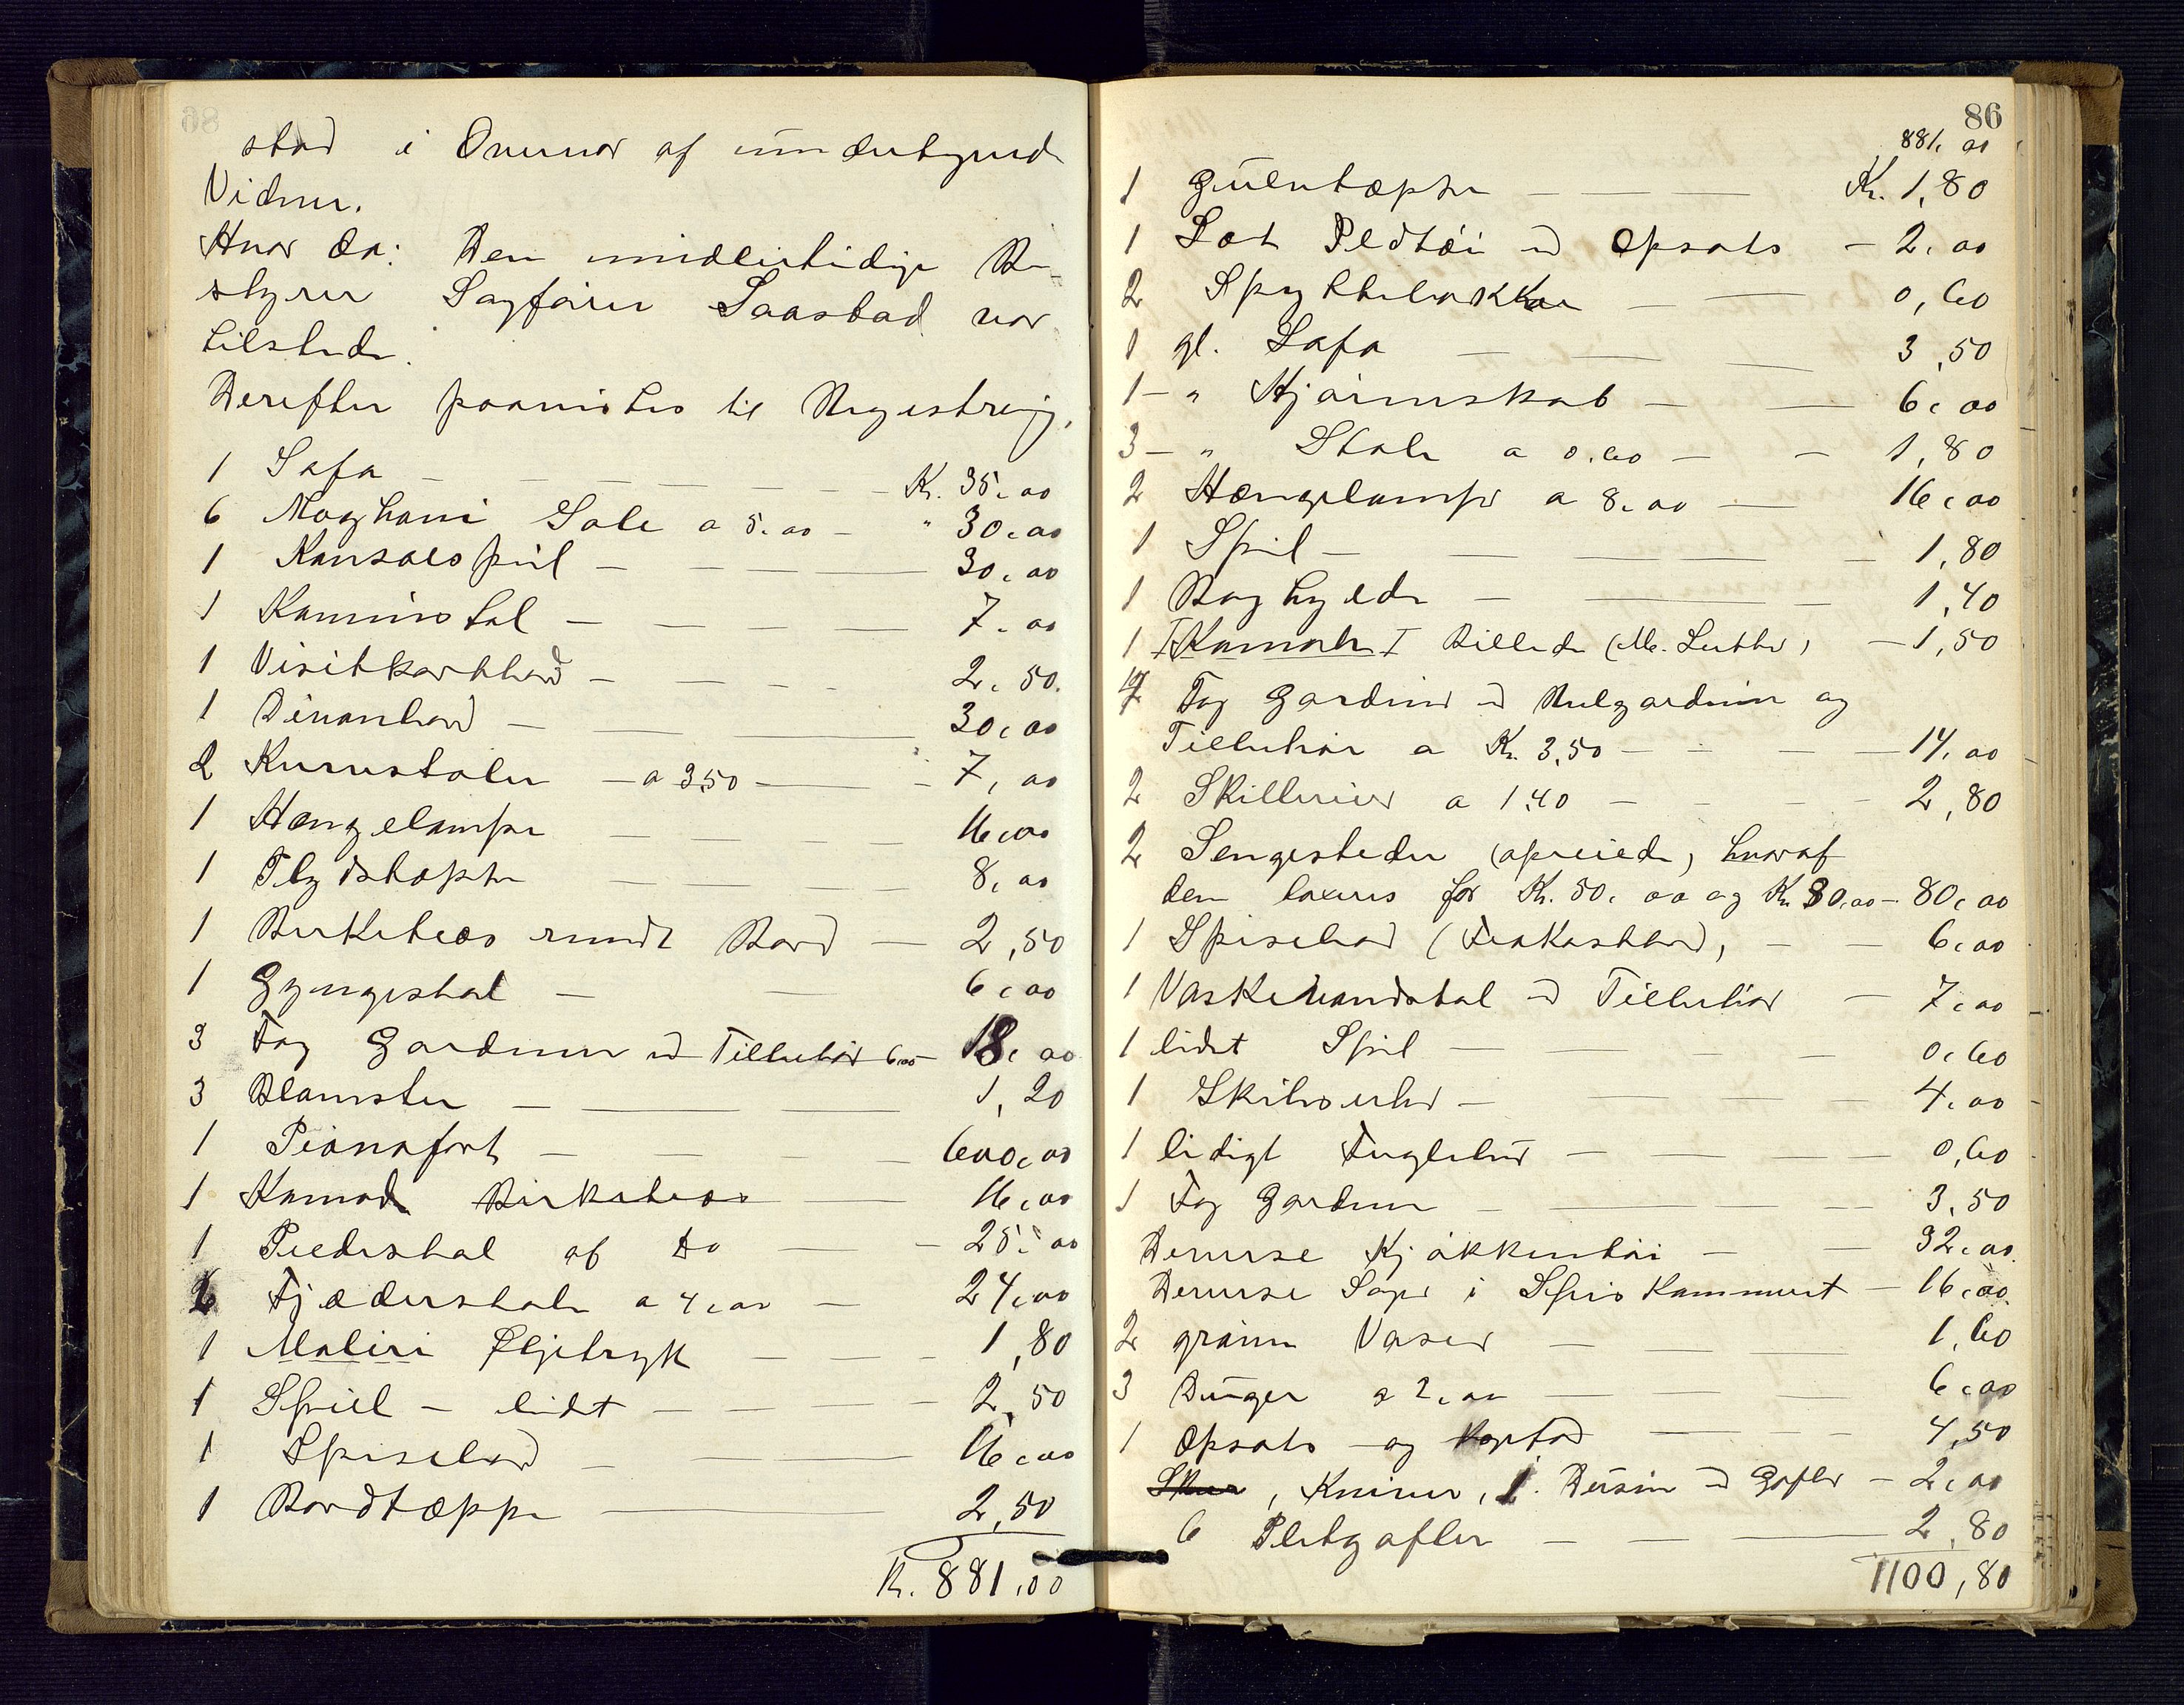 stad i Overvær af undertegnede
Vidner.
Hvor da: Den midlertidige Be-
styrer Sagfører Saastad var
tilstede.
Derefter paavistes til Registrering.
1 Sofa — K. 35,00
6 Moghani Sole a 5.00 — " 30,00
1 Konsolspeil — 30,00
1 Kaminstol — 7.00
1 Visitkortbord — 2,50.
1 Divanbord — 30,00
2 Kurvestoler — a 3,50 — 7,00
1 Hængelampe — 16,00
1 Plydsteppe — 8,00
1 Birketræs rundt Bord — 2,50
1 Gyngestol — 6,00
3 Fag Gardiner m Tilbehør 6.00 — 18,00
3 Blomster — 1,20
1 Pianoforte — 600,00
1 Komode Birketræs — 16,00
1 Piedestal af do — 25,00
6 Fjæderstole a 4,00 — 24,00
1 Maleri Oljetryk — 1,80
1 Speil — lidet — 2,50
1 Spisebord — 16,00
1 Bordtæppe — 2,50
K. 881,00
86
881,00
1 Gulvtæppe — Kr. 1,80
1 Sæt Pledtøi m Opsats — 2,00
2 Spyttebakker — 0,60
1 gl. Sofa — 3,50
1 — " Hjørneskab — 6,00
3 — " Stole a 0.60 — 1,80
2 Hængelamper a 8,00 — 16,00
1 Speil — 1,80
1 Boghylde — 1,40
1 Billede (M. Luther) — 1,50
4 Fag Gardiner m Rulgardiner og
Tilbehør a Kr. 3,50 — 14,00
2 Skillerier a 1,40 — 2,80
2 Sengesteder (opreiede) hvoraf
den taxeres for Kr. 50,00 og Kr. 30,00 — 80,00
1 Spisebord (Frokostbord) — 6,00
1 Vaskevandstol m Tilbehør — 7,00
1 lidet Speil — 0,60
1 Skilverbr — 4,00
1 lidigt Fuglebur — 0,60
1 Fag Gardiner — 3,50
Diverse Kjøkkentøi — 32,00
Diverse Sager i Spiskammeret — 16,00
2 grønne Vaser — 1,60
3 Duger a 2,00 — 6,00
1 Opsats og — 4,50
Skeer, Kniver, 1. Dusin m Gafler — 2,00
6 Pletgafler — 2,80
1100,80